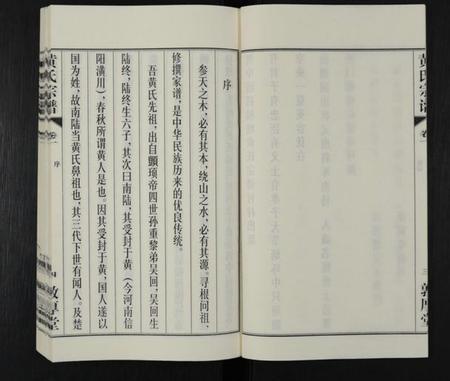 黄氏宗谱
卷一
序
四
敦厚堂
序
参天之木，必有其本，绕山之水，必有其源。寻根问祖、
修撰家谱，是中华民族历来的优良传统。
吾黄氏先祖，出自颛顼帝四世孙重黎弟吴回，吴回生
陆终，陆终生六子，其次曰南陆，其受封于黄（今河南信
阳潢川），春秋所谓黄人是也。因其受封于黄，国人遂以
国为姓，故南陆当黄氏鼻祖也，其三代下世有闻人。及楚
黄氏宗谱
卷
三
敦厚堂